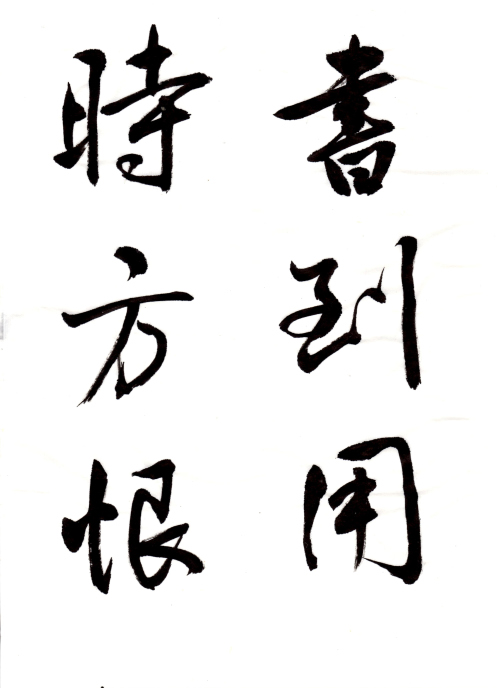 書到用
時方恨